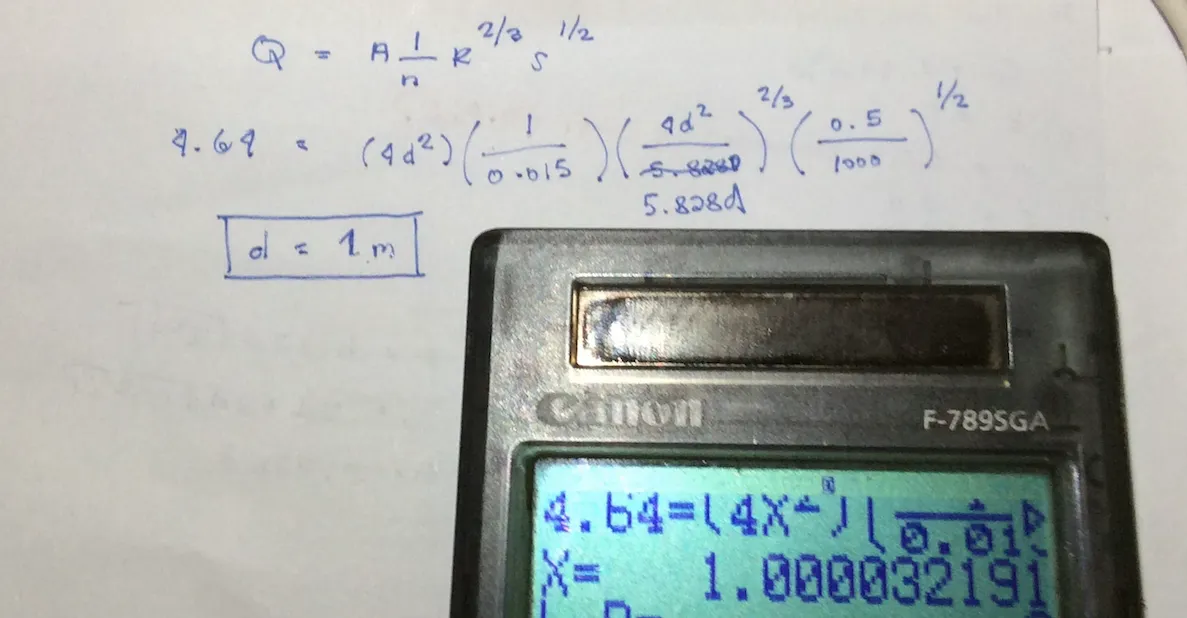 Q = A 1/n R^2/3 S^1/2
4.64 = (4d^2)(1/0.015)(4d^2/5.828d)^2/3 (0.5/1000)^1/2
d = 1 m
Canon
F-789SGA
4.64=(4X^2)(1/0.01
X= 1.000032191